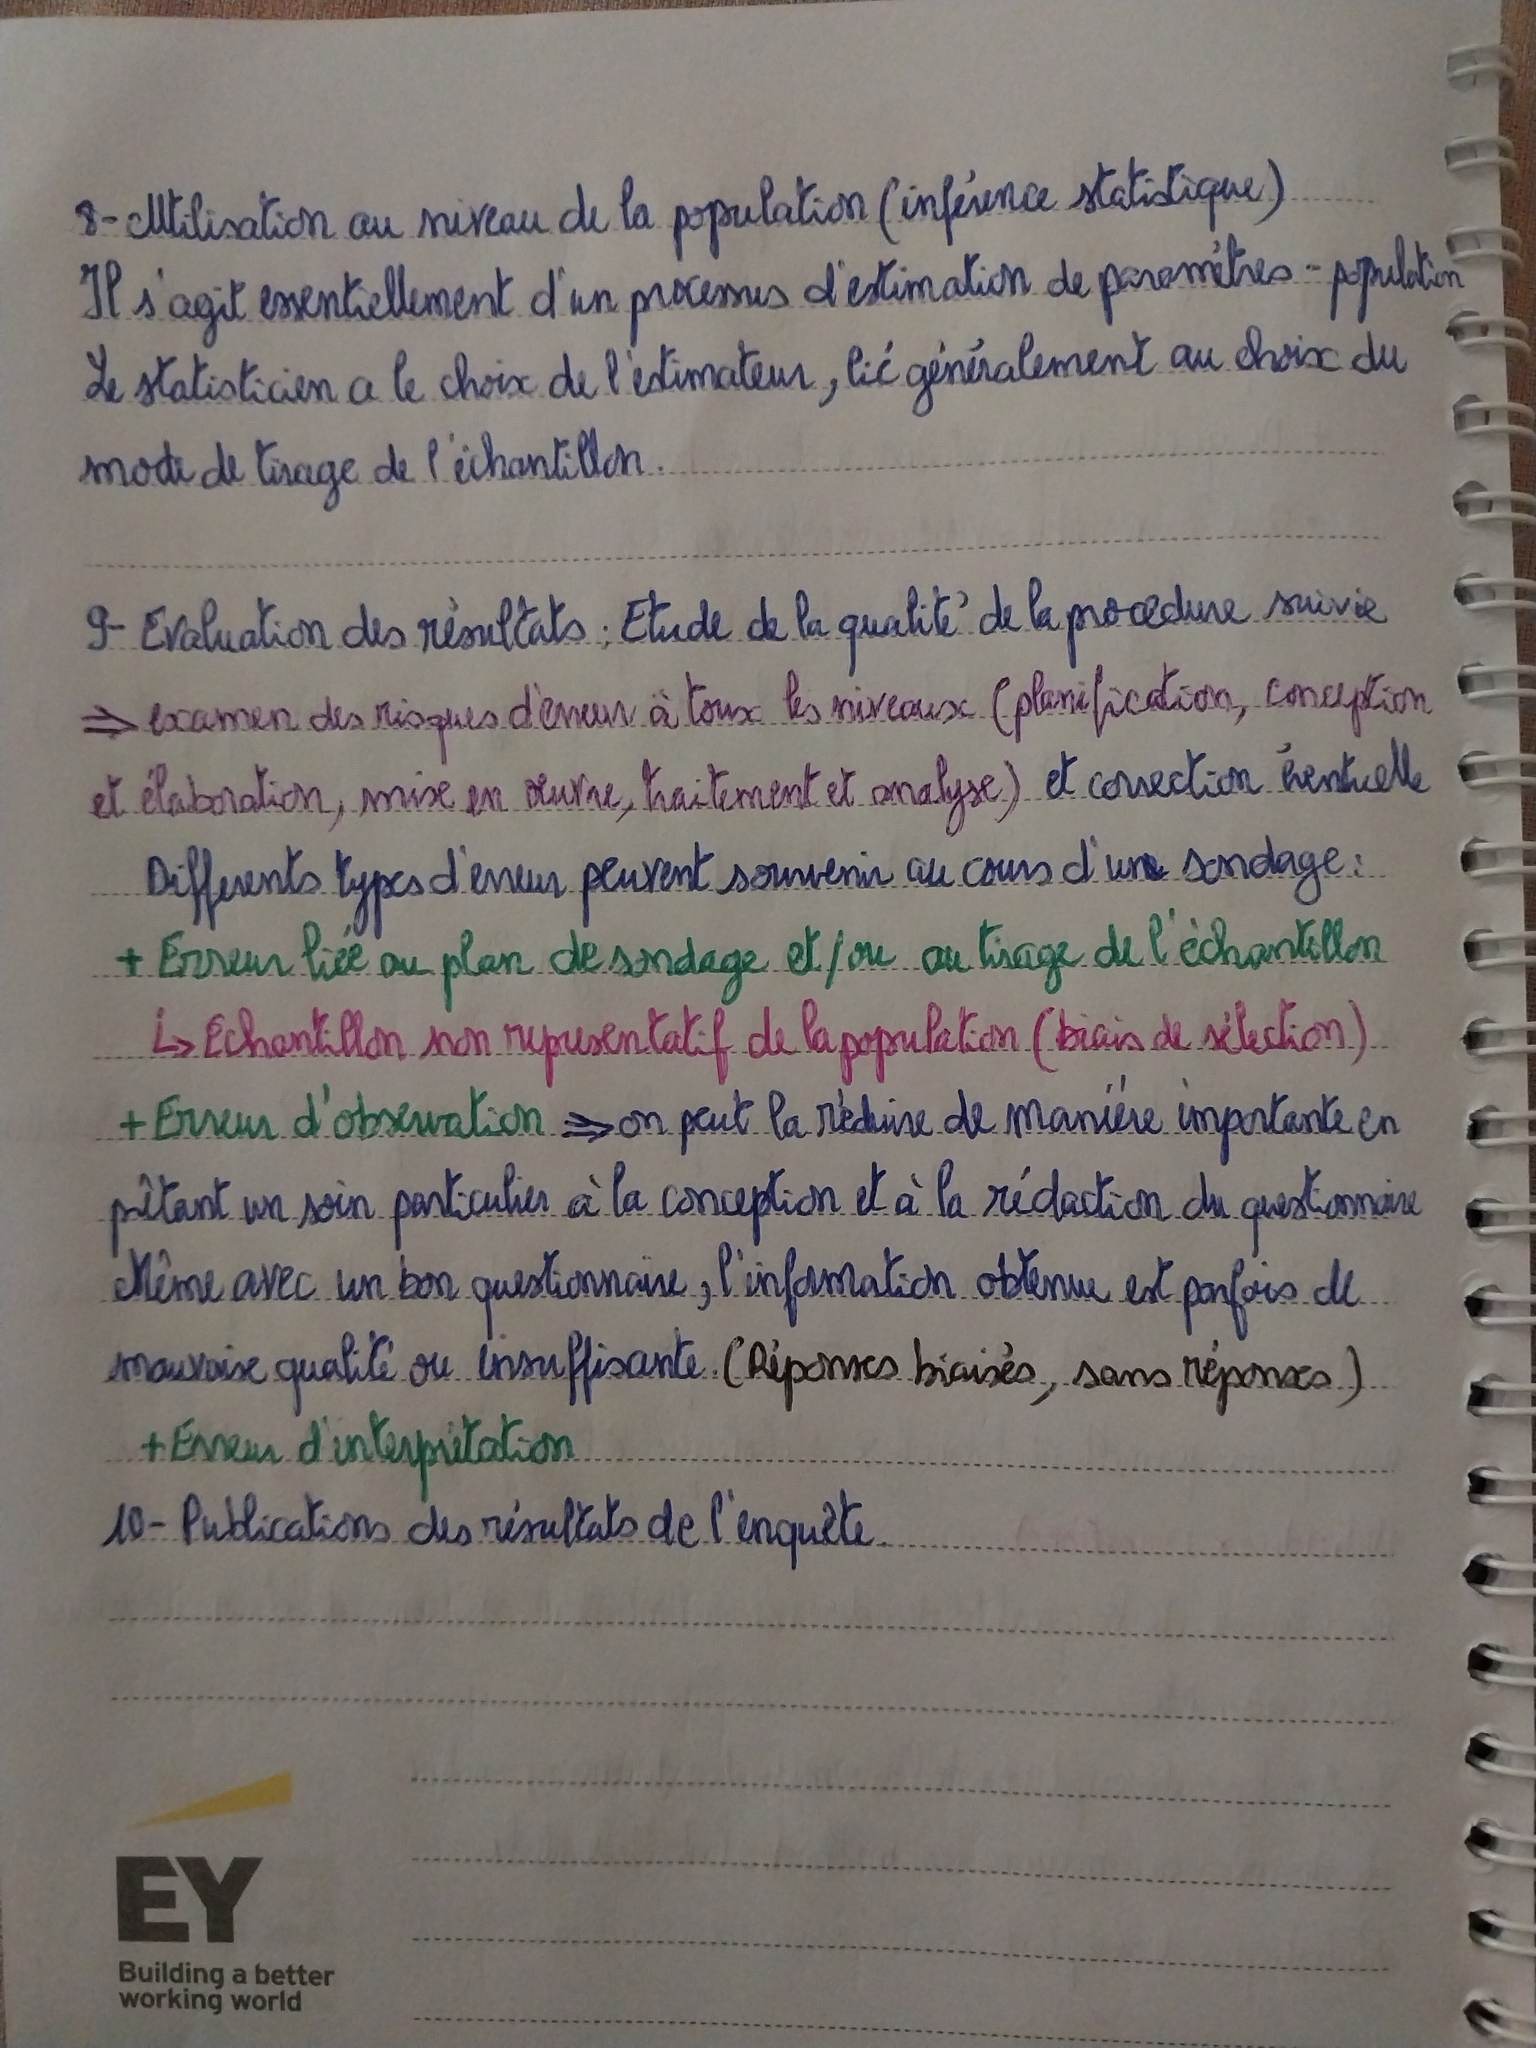 8- Utilisation au niveau de la population (inférence statistique)
Il s'agit essentiellement d'un processus d'estimation de paramètres - population
Le statisticien a le choix de l'estimateur, lié généralement au choix du
mode de tirage de l'échantillon.
9- Evaluation des résultats : Etude de la qualité de la procedure suivie
⇒ examen des risques d'erreur à toux les niveaux (planification, conception
et élaboration, mise en œuvre, traitement et analyse) et correction éventuelle
Differents types d'erreur peuvent sourvenir au cours d'une sondage :
+ Erreur liée au plan de sondage et/ou au tirage de l'échantillon
↳ Echantillon non representatif de la population (biais de sélection)
+ Erreur d'observation ⇒ on peut la réduire de manière importante en
prêtant un soin particulier à la conception et à la rédaction du questionnaire
Même avec un bon questionnaire, l'information obtenue est parfois de
mauvaise qualité ou insuffisante. (Réponses biaisés, sans réponses)
+ Erreur d'interprétation
10- Publications des résultats de l'enquête.
EY
Building a better
working world